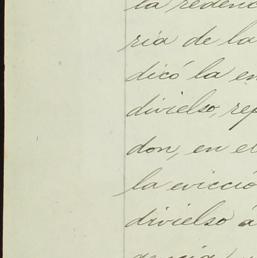 la redenc
ria de la
dicó la en
divielso, rep
don, en el
la evicció
divielso á